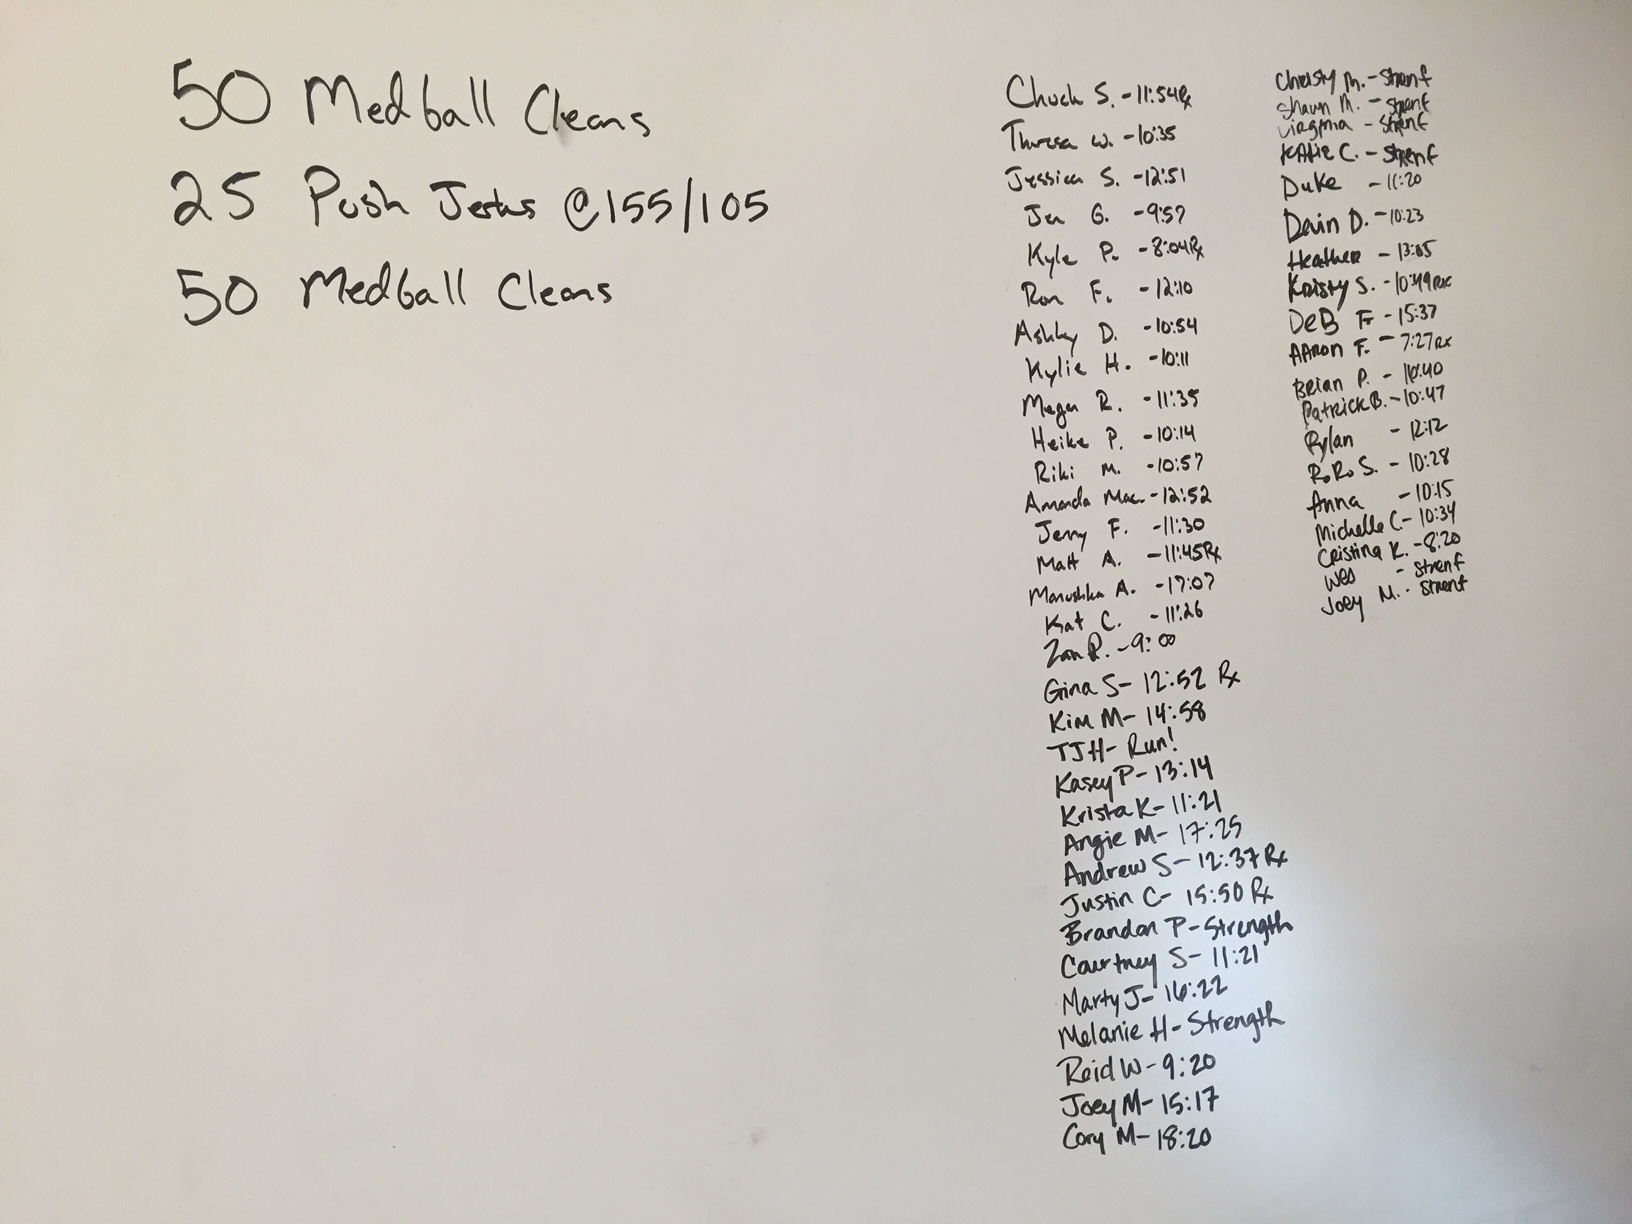 50 Medball Cleans
25 Push Jerks @155/105
50 Medball Cleans
Chuck S. - 11:54Rx
Theresa W. - 10:35
Jessica S. - 12:51
Jen G. - 9:57
Kyle P. - 8:04Rx
Ron F. - 12:10
Ashley D. - 10:54
Kylie H. - 10:11
Megan R. - 11:35
Heike P. - 10:14
Riki M. - 10:57
Amanda Mac. - 12:52
Jerry F. - 11:30
Matt A. - 11:45Rx
Manushka A. - 17:07
Kat C. - 11:26
Zan R. - 9:00
Gina S - 12:52 Rx
Kim M - 14:58
TJ H - Run!
Kasey P - 13:14
Krista K - 11:21
Angie M - 17:25
Andrew S - 12:37 Rx
Justin C - 15:50 Rx
Brandon P - Strength
Courtney S - 11:21
Marty J - 16:22
Melanie H - Strength
Reid W - 9:20
Joey M - 15:17
Cory M - 18:20
Christy M. - Strenf
Shawn M. - Strenf
Virginia - Strenf
Katie C. - Strenf
Duke - 11:20
Devin D. - 10:23
Heather - 13:05
Kristy S. - 10:49Rx
DeB F - 15:37
AAron F. - 7:27Rx
Brian P. - :40
Patrick B. - 10:47
Rylan - 12:12
RoRo S. - 10:28
Anna - 10:15
Michelle C - 10:34
Cristina K. - 8:20
Wes - Strenf
Joey M. - Strenf